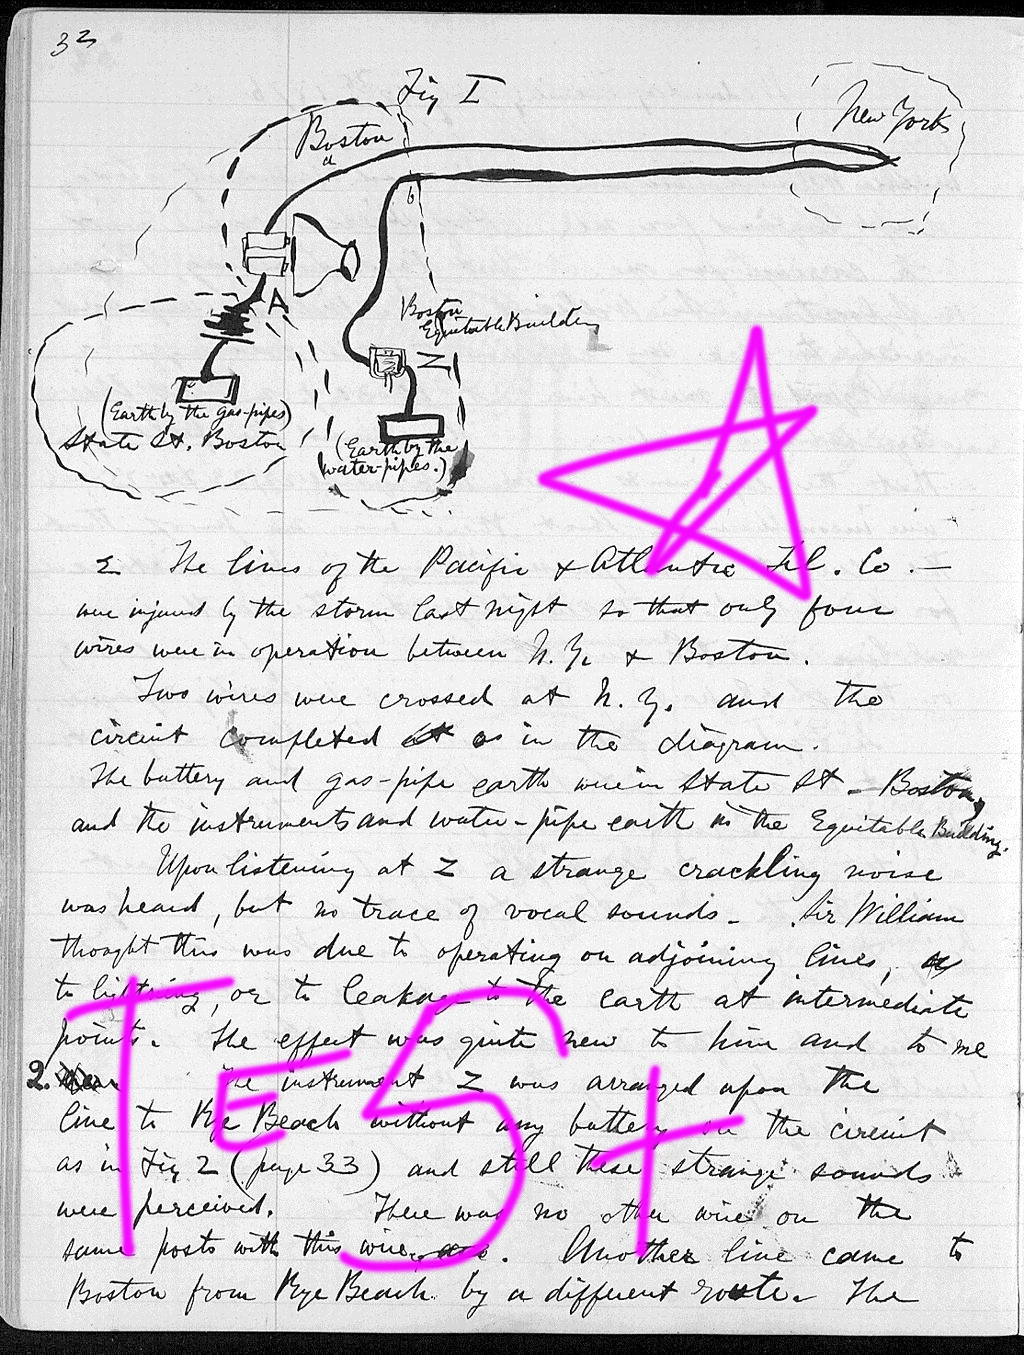 32
Fig I
Boston
New York
a
b
A
Boston
Equitable Building
Z
(Earth by the gas-pipes)
State St. Boston
(Earth by the
water-pipes.)
The lines of the Pacific & Atlantic Tel. Co. —
were injured by the storm last night so that only four
wires were in operation between N.Y. & Boston.
Two wires were crossed at N.Y. and the
circuit completed as in the diagram.
The battery and gas-pipe earth were in State St. - Boston,
and the instruments and water-pipe earth in the Equitable Building.
Upon listening at Z a strange crackling noise
was heard, but no trace of vocal sounds - Sir William
thought this was due to operating on adjoining lines,
to lightning, or to leakage to the earth at intermediate
points. The effect was quite new to him and to me
2. The instrument Z was arranged upon the
line to Rye Beach without any battery on the circuit
as in Fig 2 (page 33) and still these strange sounds
were perceived. There was no other wire on the
same posts with this wire. Another line came to
Boston from Rye Beach by a different route. The
TEST